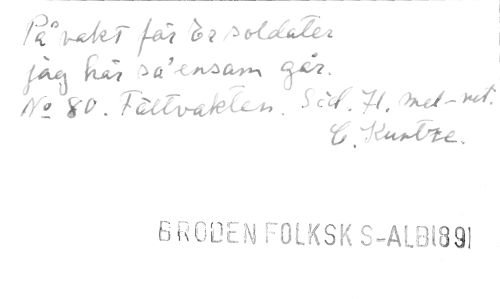 På vakt för Er soldater
jag här så ensam går.
No 80. Fältvakten. Sid. 71. mel-not.
C. Kuntze.
BRODEN FOLKSK S-ALB1891